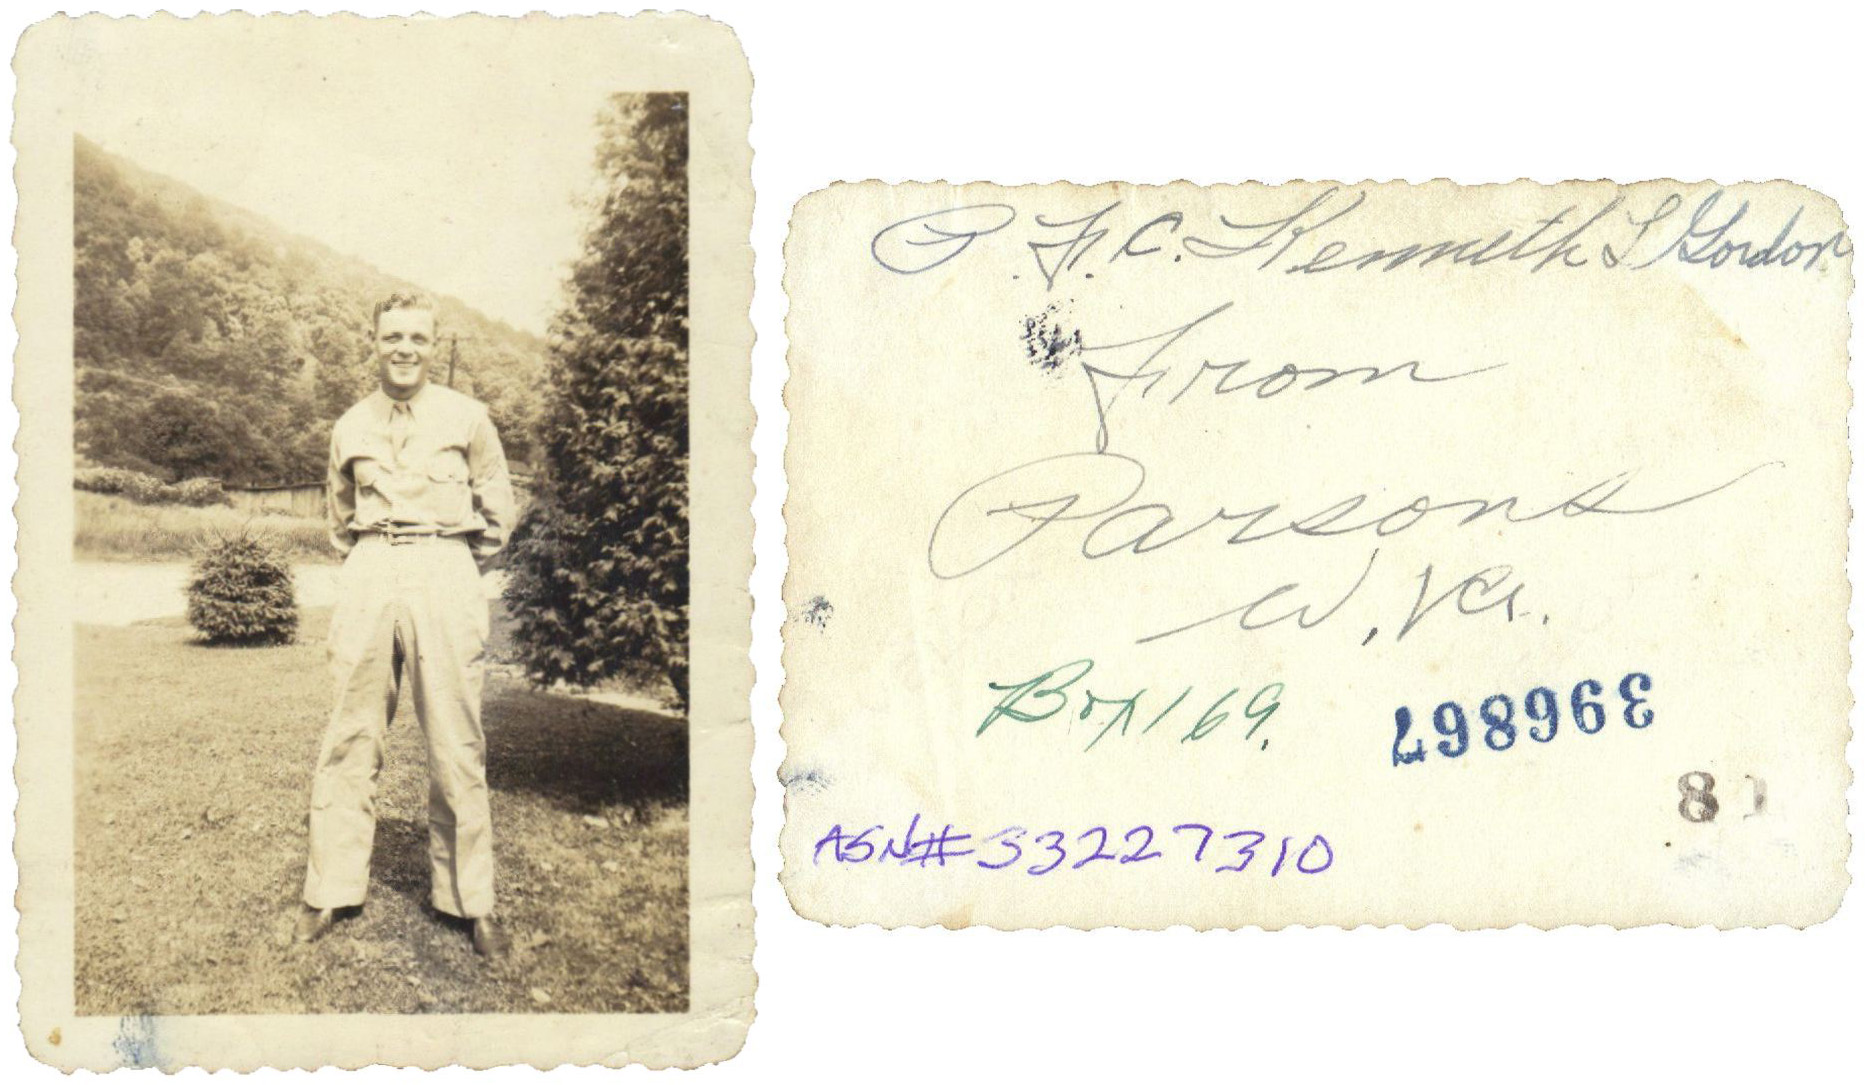 P.F.C. Kenneth L Gordon
From
Parsons
W.Va.
Box 169.
396867
8
ASN# 33227310